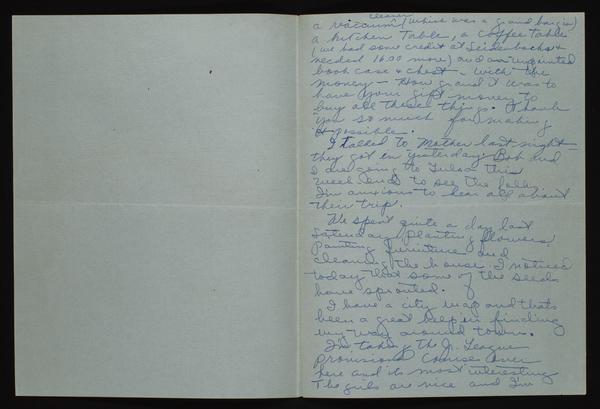 cleaner
a vacuum (which was a grand bargin)
a kitchen table, a coffee table
(we had some credit at Seidenbachs &
needed 16.00 more) and an unpainted
book case & chest - with the
money - How grand it was to
have your gift money to
buy all these things. Thank
you so much for making
it possible.
I talked to Mother last night -
they got in yesterday. Bob and
I are going to Tulsa this
week end to see the folks
I'm anxious to hear all about
their trip.
We spent quite a day last
Saturday planting flowers,
painting furniture and
cleaning the house. I noticed
today that some of the seeds
have sprouted.
I have a city map and thats
been a great help in finding
my way around town.
I'm taking the Jr. League
provisional course over
here and its most interesting
The girls are nice and I'm